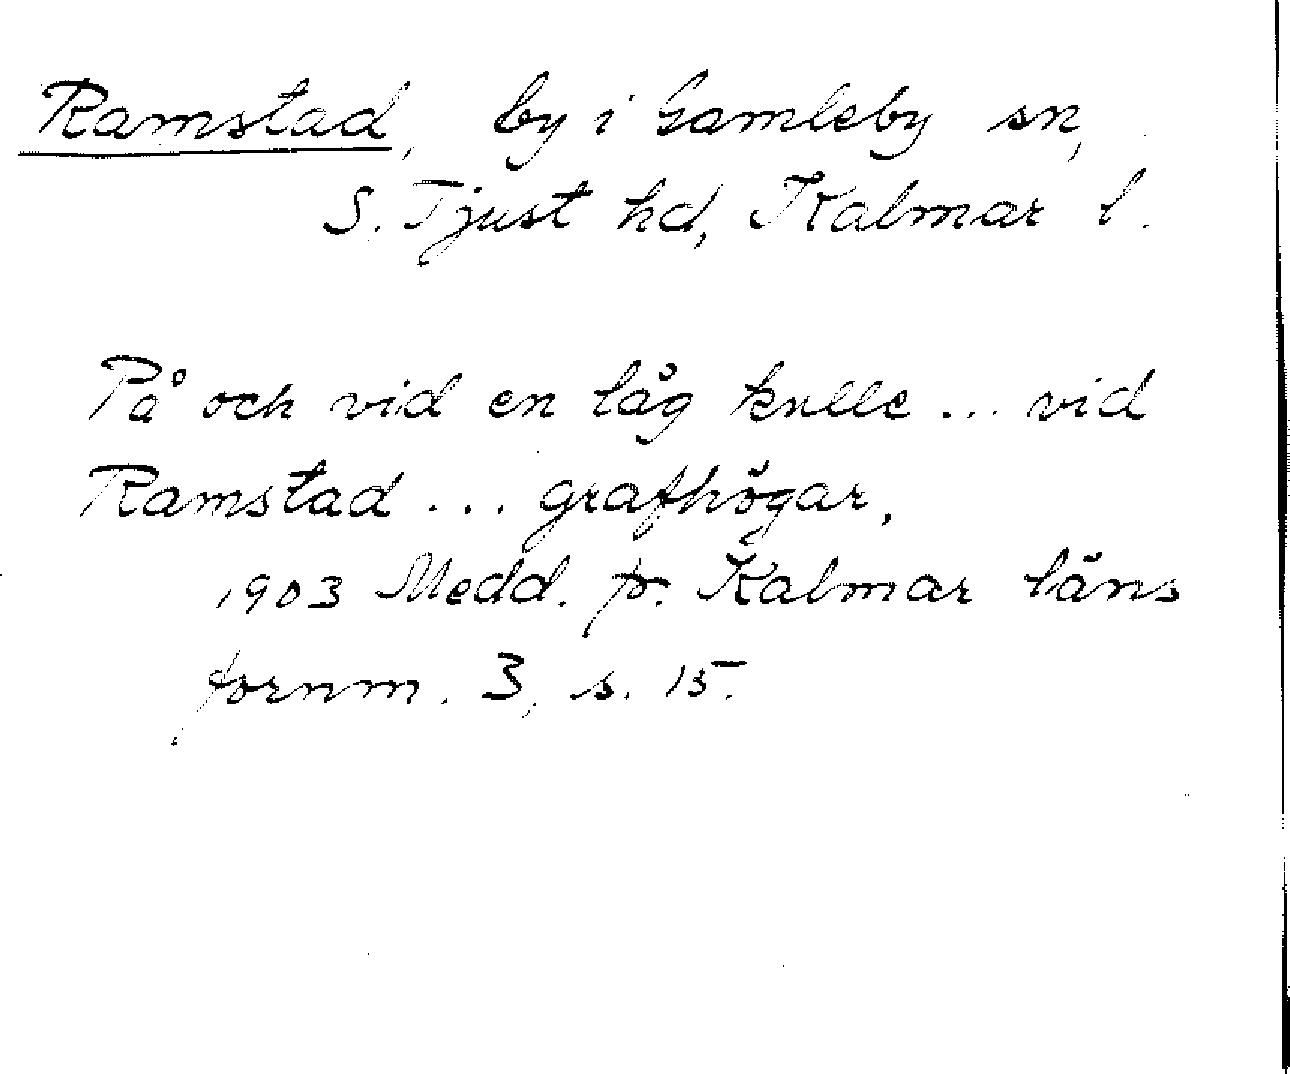 Ramstad, by i Gamleby sn,
S. Tjust hd, Kalmar l.
På och vid en låg kulle ... vid
Ramstad ... grafhögar,
1903 Medd. fr. Kalmar läns
fornm. 3, s. 15.